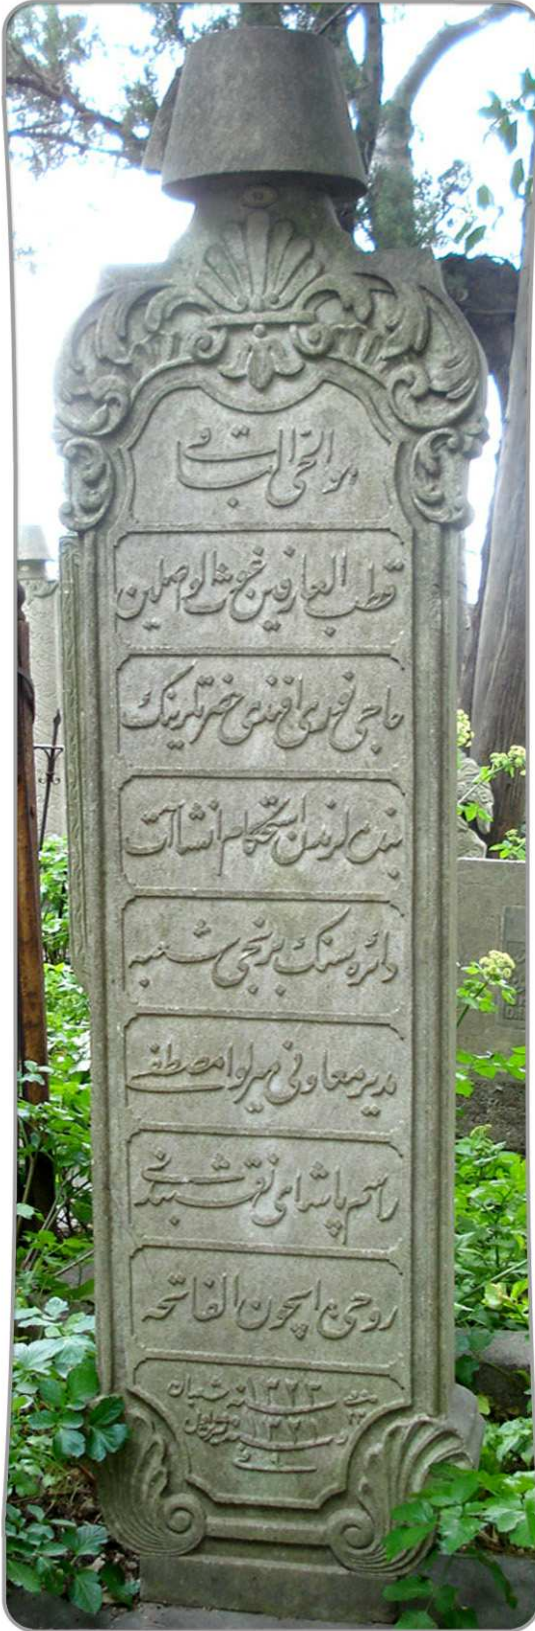 هو الحی الباقی
قطب العارفین غوث الواصلین
حاجی فوزی افندی حضرتلرینك
بنده لرندن استحکام انشاآت
دائره سنك برنجی شعبه
مدیر معاونی میرلوا مصطفی
راسم پاشای نقشبندی
روحی ایچون الفاتحه
سنه ١٣٢٣ شعبان ٢٢